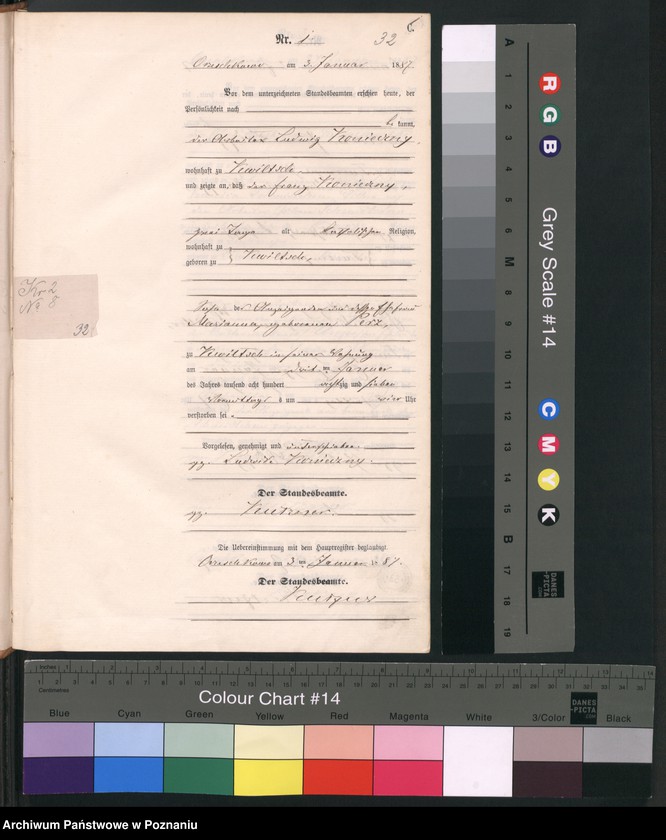 Nr. 1
32
am 3. Januar 1887
Vor dem unterzeichneten Standesbeamten erschien heute, der
Persönlichkeit nach
be kannt,
der Arbeiter Ludwig Konieczny,
wohnhaft zu Kwiltsch
und zeigte an, daß der Franz Konieczny,
zwei Tage alt katholischer Religion,
wohnhaft zu
geboren zu } Kwiltsch,
Sohn des Anzeigenden und
Marianna, geborenen
zu Kwiltsch in seiner Wohnung
am drei ten Januar
des Jahres tausend acht hundert achtzig und sieben
Vormittags um vier Uhr
verstorben sei.
Vorgelesen, genehmigt und unterschrieben
gez. Ludwik Konieczny.
Der Standesbeamte.
gez.
Die Uebereinstimmung mit dem Hauptregister beglaubigt.
am 3 ten Januar 1887.
Der Standesbeamte.
Kr 2
No 8
32
A 1 2 3 4 5 6 M 8 9 10 11 12 13 14 15 B 17 18 19
R G B
Grey Scale #14
C M Y K
DANES-PICTA.COM
Inches 1 2 3 4 5 6 7 8 9 10 11 12 13 14
Centimetres 1 2 3 4 5 6 7 8 9 10 11 12 13 14 15 16 17 18 19 20 21 22 23 24 25 26 27 28 29 30 31 32 33 34 35
Colour Chart #14
DANES-PICTA.COM
Blue Cyan Green Yellow Red Magenta White 3/Color Black
Archiwum Państwowe w Poznaniu